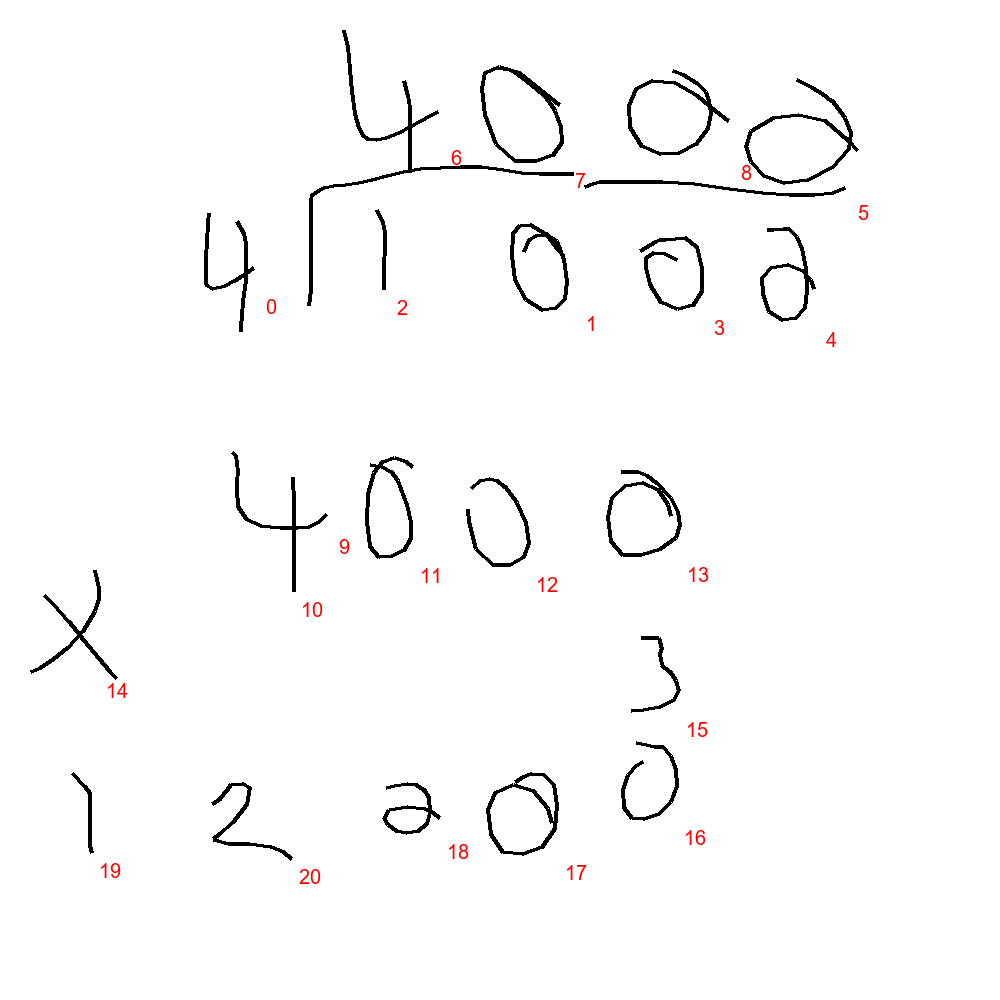 4000
6 7 8 5
4 1000
0 2 1 3 4
4000
9 10 11 12 13
× 3
14 15
12000
19 20 18 17 16